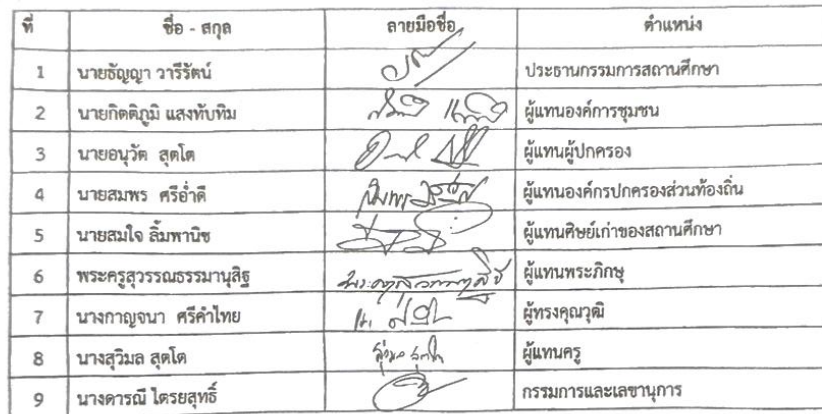 ที่ ชื่อ - สกุล ลายมือชื่อ ตำแหน่ง
1 นายธัญญา วารีรัตน์ ประธานกรรมการสถานศึกษา
2 นายกิตติภูมิ แสงทับทิม ผู้แทนองค์การชุมชน
3 นายอนุวัต สุตโต ผู้แทนผู้ปกครอง
4 นายสมพร ศรีอ่ำดี ผู้แทนองค์กรปกครองส่วนท้องถิ่น
5 นายสมใจ ลิ้มพานิช ผู้แทนศิษย์เก่าของสถานศึกษา
6 พระครูสุวรรณธรรมานุสิฐ ผู้แทนพระภิกษุ
7 นางกาญจนา ศรีคำไทย ผู้ทรงคุณวุฒิ
8 นางสุวิมล สุตโต สุวิมล สุตโต ผู้แทนครู
9 นางดารณี ไตรยสุทธิ์ กรรมการและเลขานุการ